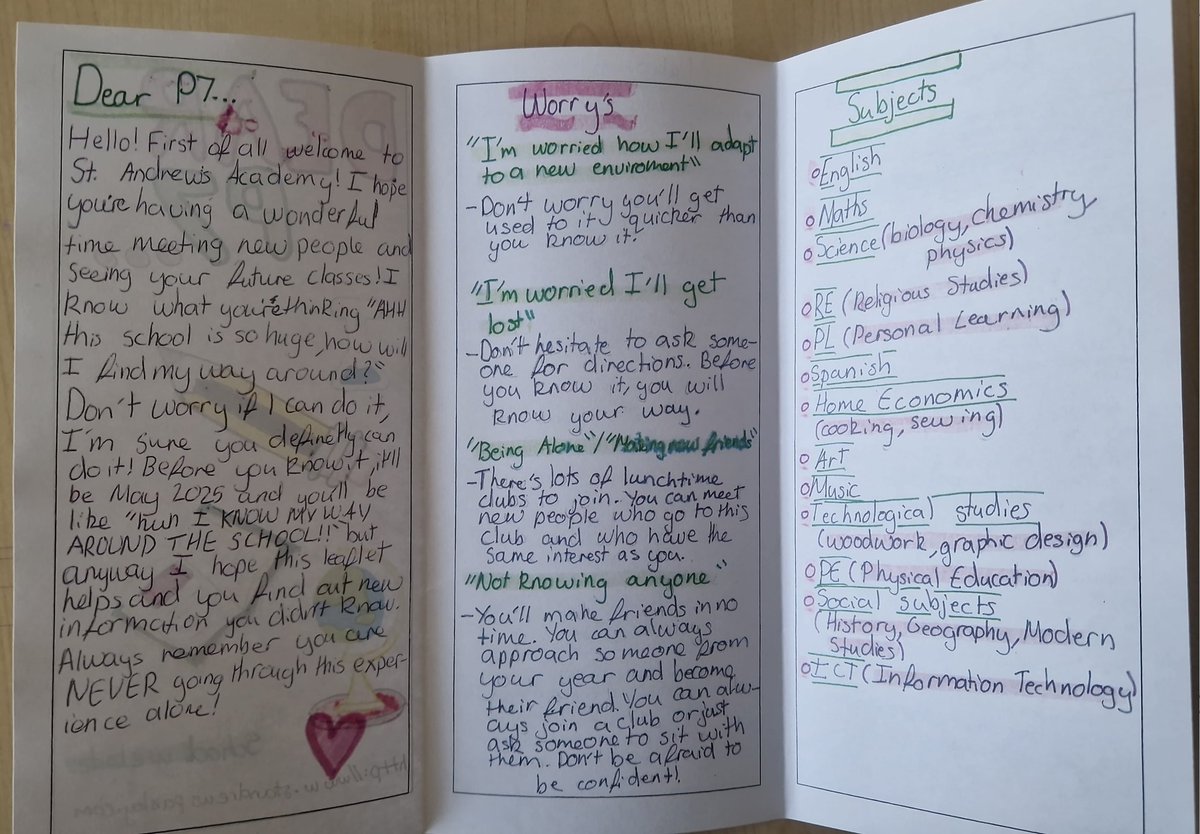 Dear P7...
Hello! First of all welcome to
St. Andrew's Academy! I hope
you're having a wonderful
time meeting new people and
seeing your future classes! I
know what you're thinking "AHH
this school is so huge, how will
I find my way around?"
Don't worry if I can do it,
I'm sure you definetly can
do it! Before you know it, it'll
be May 2025 and you'll be
like "huh I KNOW MY WAY
AROUND THE SCHOOL!!" but
anyway I hope this leaflet
helps and you find out new
information you didn't know.
Always remember you are
NEVER going through this exper-
ience alone!
Worry's
"I'm worried how I'll adapt
to a new enviroment"
- Don't worry you'll get
used to it quicker than
you know it.
"I'm worried I'll get
lost"
- Don't hesitate to ask some-
one for directions. Before
you know it, you will
know your way.
"Being Alone"/"Making new friends"
- There's lots of lunchtime
clubs to join. You can meet
new people who go to this
club and who have the
same interest as you.
"Not knowing anyone"
- You'll make friends in no
time. You can always
approach someone from
your year and become
their friend. You can alw-
ays join a club or just
ask someone to sit with
them. Don't be afraid to
be confident!
Subjects
English
Maths
Science (biology, chemistry,
physics)
RE (Religious Studies)
PL (Personal Learning)
Spanish
Home Economics
(cooking, sewing)
Art
Music
Technological studies
(woodwork, graphic design)
PE (Physical Education)
Social subjects
(History, Geography, Modern
Studies)
ICT (Information Technology)